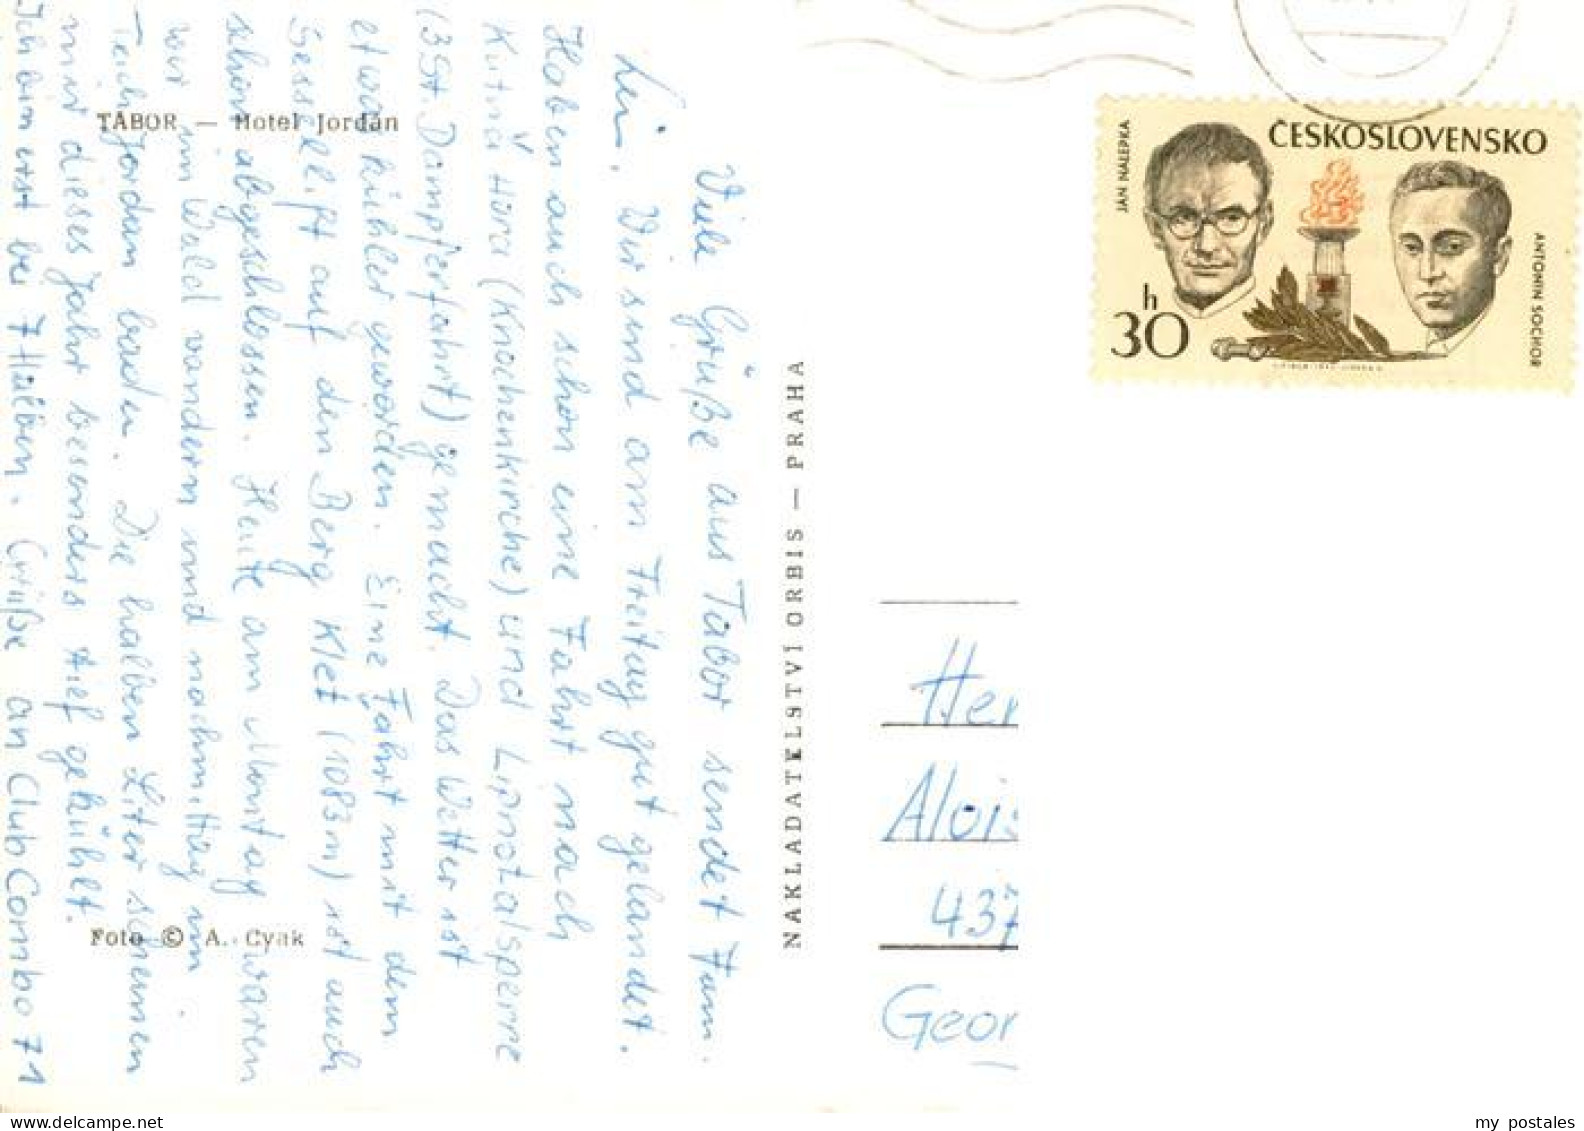 TÁBOR — Hotel Jordán
Viele Grüße aus Tabor sendet Fam.
Wir sind am Freitag gut gelandet.
Haben auch schon eine Fahrt nach
Kutná Hora (Knochenkirche) und Lipnotalsperre
(3 St. Dampferfahrt) gemacht. Das Wetter ist
etwas kühler geworden. Eine Fahrt mit dem
Sessellift auf den Berg Kleť (1083m) ist auch
schon abgeschlossen. Heute am Montag waren
wir im Wald wandern und nachmittag im
Teich Jordan baden. Die halben Liter scheinen
mir dieses Jahr besonders tief gekühlt.
Ich bin erst bei 7 Halben. Grüße an Club Combo 71
Foto © A. Cvak
NAKLADATELSTVÍ ORBIS — PRAHA
ČESKOSLOVENSKO
JAN NÁLEPKA
ANTONÍN SOCHOR
30 h
Her
Alois
437
Geor
my postales